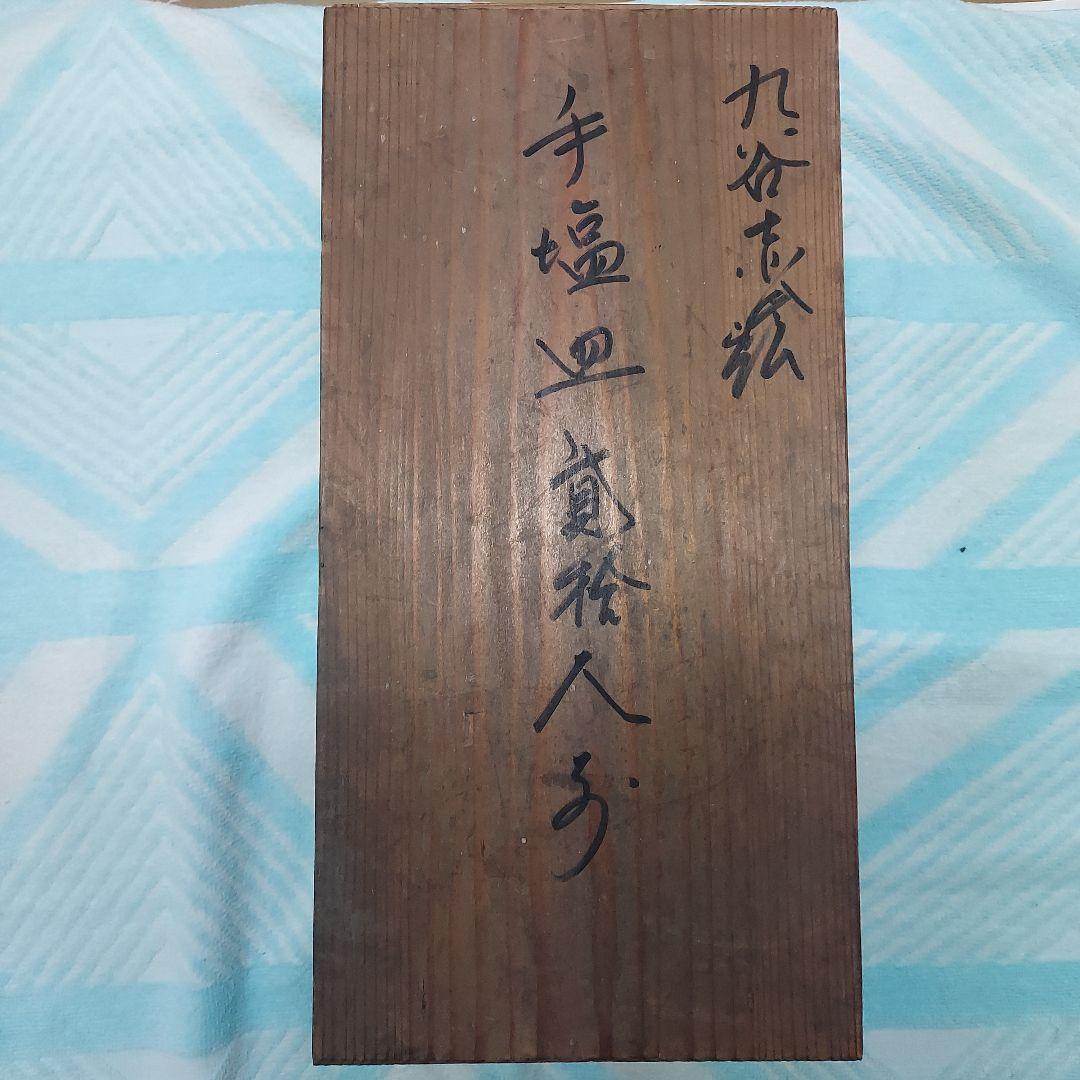 九谷赤絵
手塩皿貳拾人前